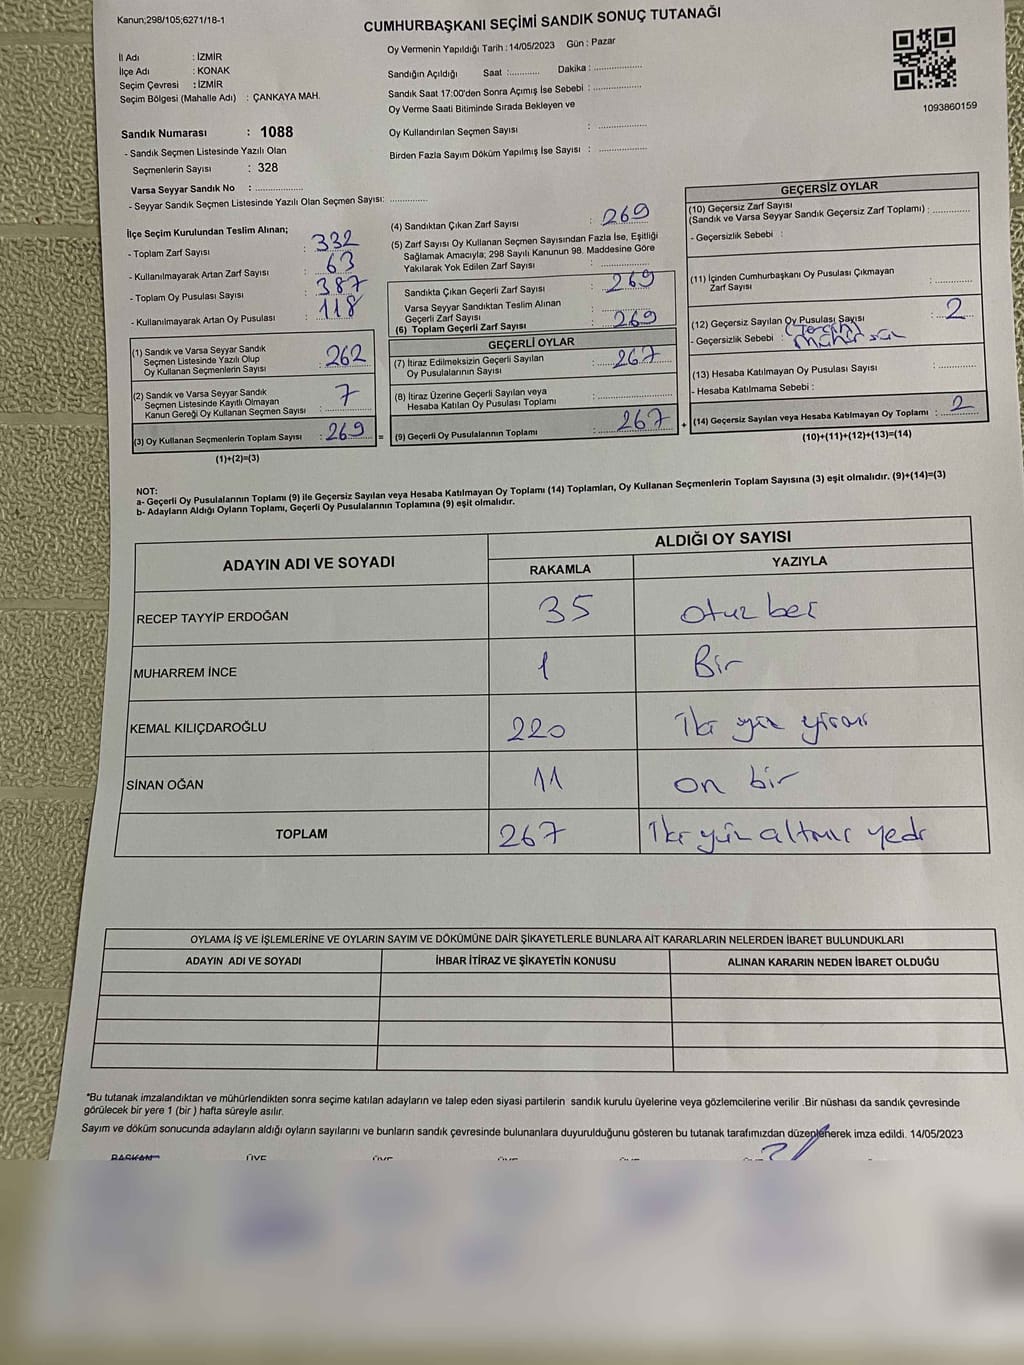 Kanun;298/105;6271/18-1
CUMHURBAŞKANI SEÇİMİ SANDIK SONUÇ TUTANAĞI
İl Adı : İZMİR
İlçe Adı : KONAK
Seçim Çevresi : İZMİR
Seçim Bölgesi (Mahalle Adı) : ÇANKAYA MAH.
Oy Vermenin Yapıldığı Tarih :14/05/2023 Gün : Pazar
Sandığın Açıldığı Saat :............ Dakika : ..................
Sandık Saat 17:00'den Sonra Açımış İse Sebebi : ..................
Oy Verme Saati Bitiminde Sırada Bekleyen ve
Oy Kullandırılan Seçmen Sayısı : ..................
Birden Fazla Sayım Döküm Yapılmış İse Sayısı : ..................
1093860159
Sandık Numarası : 1088
- Sandık Seçmen Listesinde Yazılı Olan
Seçmenlerin Sayısı : 328
Varsa Seyyar Sandık No : ..................
- Seyyar Sandık Seçmen Listesinde Yazılı Olan Seçmen Sayısı: ..............
İlçe Seçim Kurulundan Teslim Alınan;
- Toplam Zarf Sayısı : 332
- Kullanılmayarak Artan Zarf Sayısı : 63
- Toplam Oy Pusulası Sayısı : 387
- Kullanılmayarak Artan Oy Pusulası : 118
(1) Sandık ve Varsa Seyyar Sandık
Seçmen Listesinde Yazılı Olup
Oy Kullanan Seçmenlerin Sayısı : 262
(2) Sandık ve Varsa Seyyar Sandık
Seçmen Listesinde Kayıtlı Olmayan
Kanun Gereği Oy Kullanan Seçmen Sayısı : 7
(3) Oy Kullanan Seçmenlerin Toplam Sayısı : 269
(1)+(2)=(3)
(4) Sandıktan Çıkan Zarf Sayısı : 269
(5) Zarf Sayısı Oy Kullanan Seçmen Sayısından Fazla İse, Eşitliği
Sağlamak Amacıyla; 298 Sayılı Kanunun 98. Maddesine Göre
Yakılarak Yok Edilen Zarf Sayısı : ..................
Sandıkta Çıkan Geçerli Zarf Sayısı : 269
Varsa Seyyar Sandıktan Teslim Alınan
Geçerli Zarf Sayısı :
(6) Toplam Geçerli Zarf Sayısı : 269
GEÇERLİ OYLAR
(7) İtiraz Edilmeksizin Geçerli Sayılan
Oy Pusulalarının Sayısı : 267
(8) İtiraz Üzerine Geçerli Sayılan veya
Hesaba Katılan Oy Pusulası Toplamı : ..................
= (9) Geçerli Oy Pusulalarının Toplamı : 267
GEÇERSİZ OYLAR
(10) Geçersiz Zarf Sayısı
(Sandık ve Varsa Seyyar Sandık Geçersiz Zarf Toplamı) : ............
- Geçersizlik Sebebi :
(11) İçinden Cumhurbaşkanı Oy Pusulası Çıkmayan
Zarf Sayısı : ............
(12) Geçersiz Sayılan Oy Pusulası Sayısı : 2
- Geçersizlik Sebebi :
(13) Hesaba Katılmayan Oy Pusulası Sayısı : ............
- Hesaba Katılmama Sebebi :
+ (14) Geçersiz Sayılan veya Hesaba Katılmayan Oy Toplamı : 2
(10)+(11)+(12)+(13)=(14)
NOT:
a- Geçerli Oy Pusulalarının Toplamı (9) ile Geçersiz Sayılan veya Hesaba Katılmayan Oy Toplamı (14) Toplamları, Oy Kullanan Seçmenlerin Toplam Sayısına (3) eşit olmalıdır. (9)+(14)=(3)
b- Adayların Aldığı Oyların Toplamı, Geçerli Oy Pusulalarının Toplamına (9) eşit olmalıdır.
ADAYIN ADI VE SOYADI
ALDIĞI OY SAYISI
RAKAMLA YAZIYLA
RECEP TAYYİP ERDOĞAN 35 otuz beş
MUHARREM İNCE 1 Bir
KEMAL KILIÇDAROĞLU 220 iki yüz yirmi
SİNAN OĞAN 11 on bir
TOPLAM 267 iki yüz altmış yedi
OYLAMA İŞ VE İŞLEMLERİNE VE OYLARIN SAYIM VE DÖKÜMÜNE DAİR ŞİKAYETLERLE BUNLARA AİT KARARLARIN NELERDEN İBARET BULUNDUKLARI
ADAYIN ADI VE SOYADI İHBAR İTİRAZ VE ŞİKAYETİN KONUSU ALINAN KARARIN NEDEN İBARET OLDUĞU
*Bu tutanak imzalandıktan ve mühürlendikten sonra seçime katılan adayların ve talep eden siyasi partilerin sandık kurulu üyelerine veya gözlemcilerine verilir .Bir nüshası da sandık çevresinde
görülecek bir yere 1 (bir ) hafta süreyle asılır.
Sayım ve döküm sonucunda adayların aldığı oyların sayılarını ve bunların sandık çevresinde bulunanlara duyurulduğunu gösteren bu tutanak tarafımızdan düzenlenerek imza edildi. 14/05/2023
BAŞKAN ÜYE ÜYE